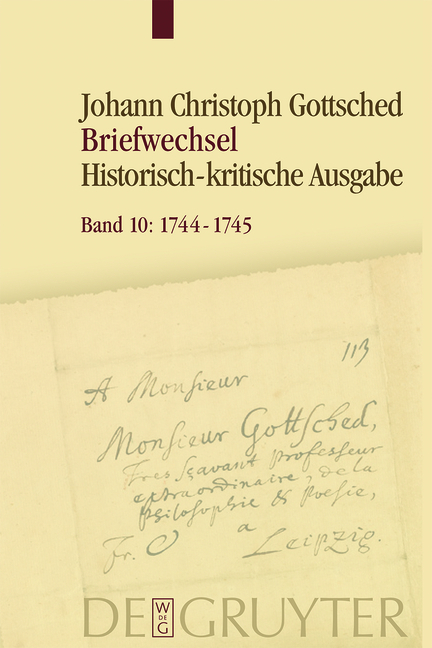 Johann Christoph Gottsched
Briefwechsel
Historisch-kritische Ausgabe
Band 10: 1744-1745
113
A Monsieur
Monsieur Gottsched,
Tres sçavant professeur
extraordinaire, de la
philosophie & Poesie,
a
Fr. Leipzig.
DE GRUYTER
W
DE
G